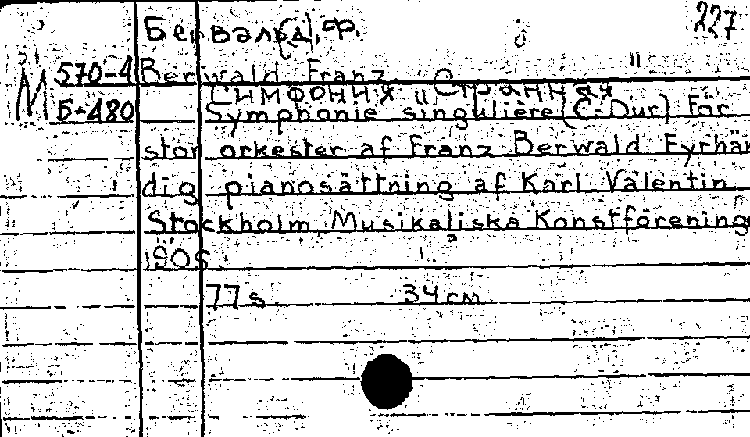 227
Бервальд, Ф.
М 570-4 Berwald Franz
Симфония "Странная"
Б-480 Symphonie singulière (C-Dur) För
stor orkester af Franz Berwald Fyrhän
dig pianosättning af Karl Valentin
Stockholm, Musikaliska Konstförening
1905
77 s 34 cm